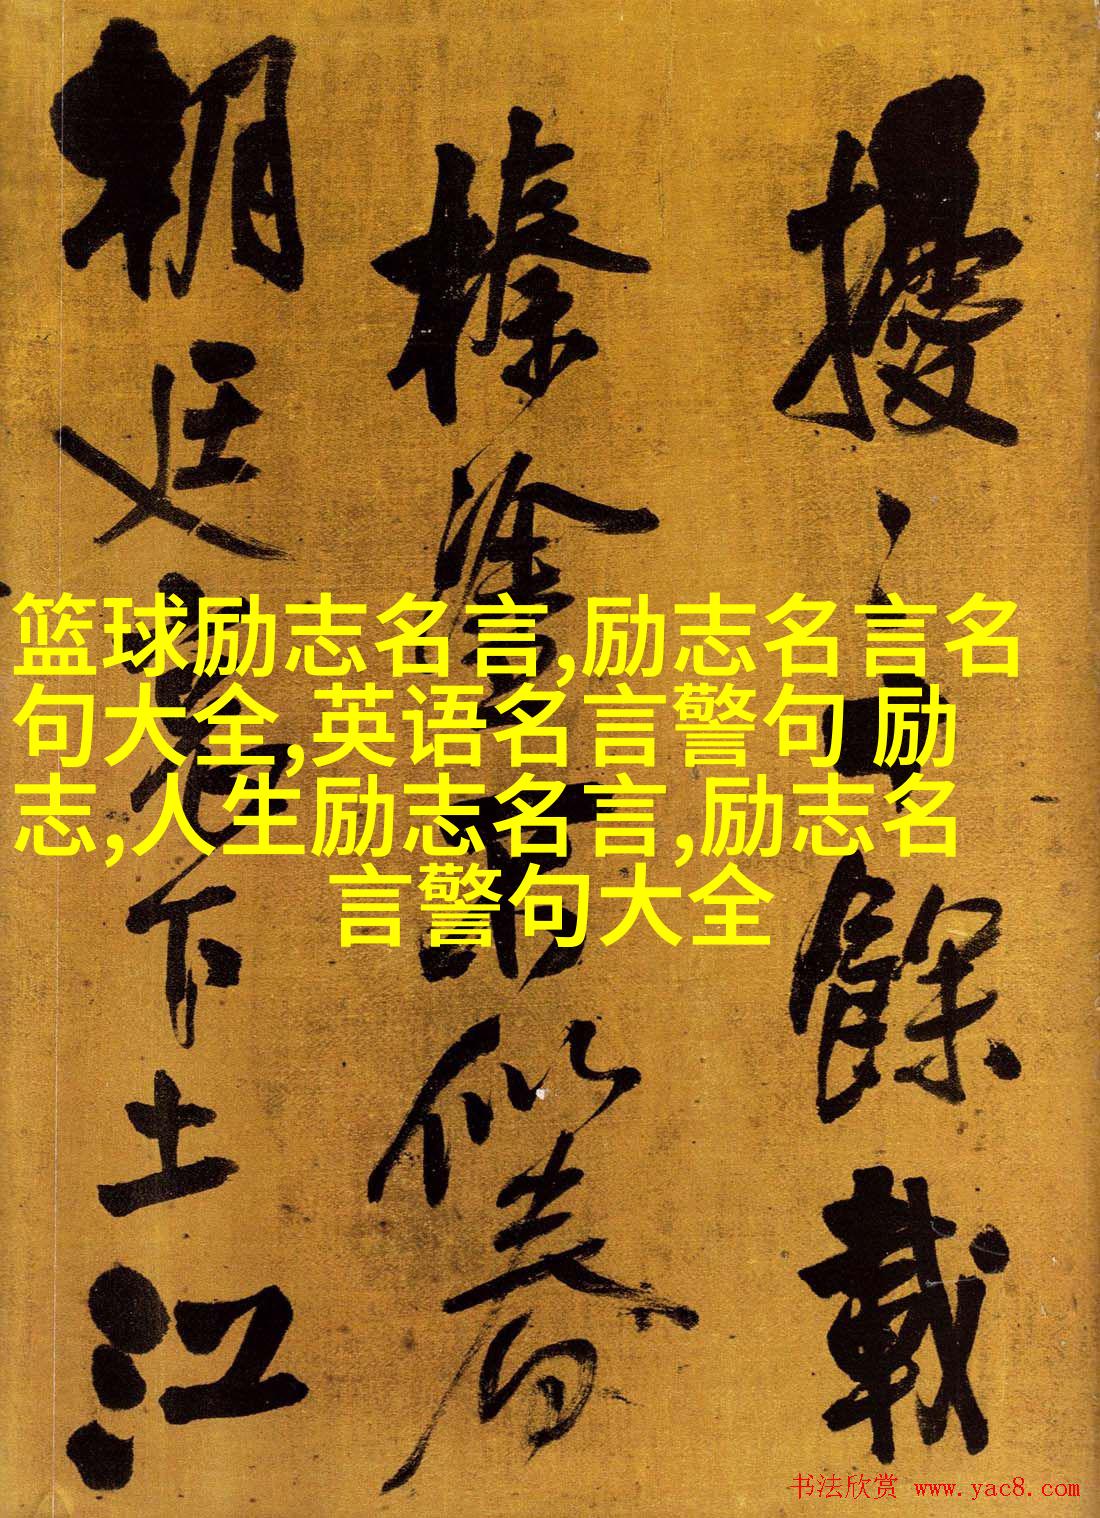 篮球励志名言,励志名言名
句大全,英语名言警句 励
志,人生励志名言,励志名
言警句大全
擾餘載
榛塗似
朝廷下土江
书法欣赏 www.yac8.com